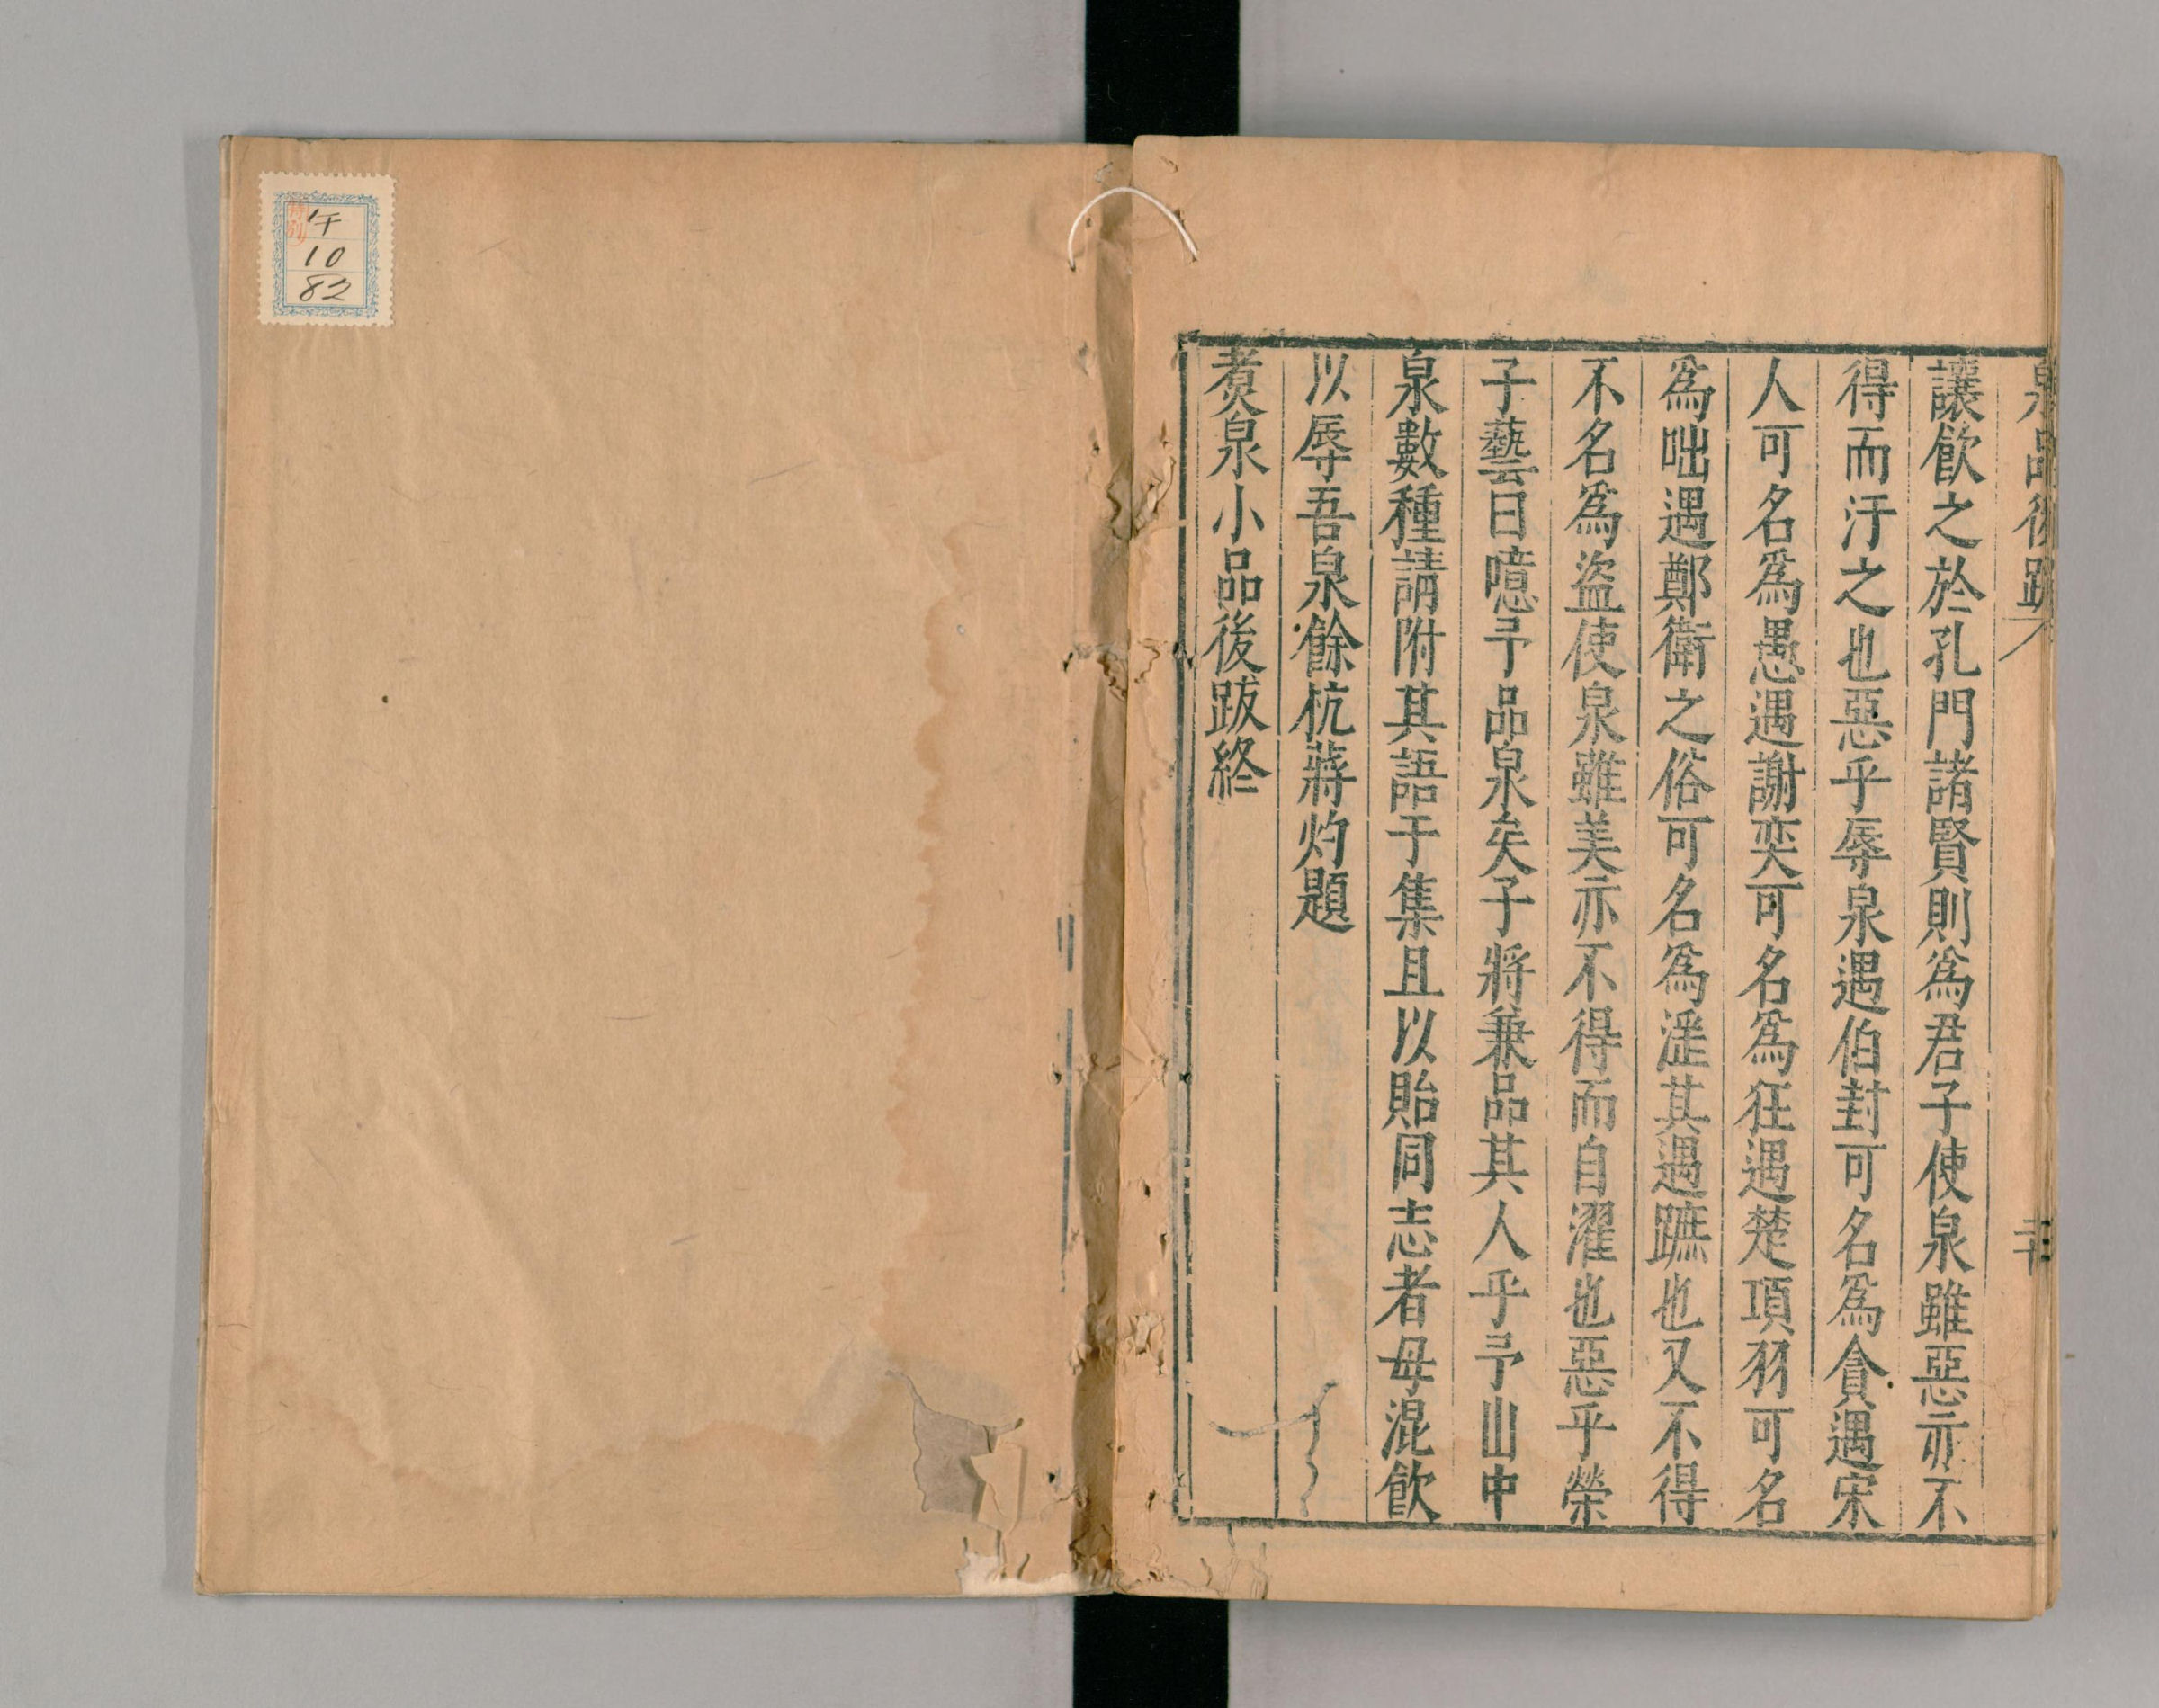 讓飮之於孔門諸賢則爲君子使泉雖惡亦不
得而汙之也惡乎辱泉遇伯封可名爲貪遇宋
人可名爲愚遇謝奕可名爲狂遇楚項羽可名
爲咄遇鄭衛之俗可名爲滛其遇蹠也又不得
不名爲盜使泉雖美亦不得而自濯也惡乎榮
子藝曰噫予品泉矣子將兼品其人乎予山中
泉數種請附其語于集且以貽同志者毋混飮
以辱吾泉餘杭蔣灼題
煑泉小品後跋終
午
10
82